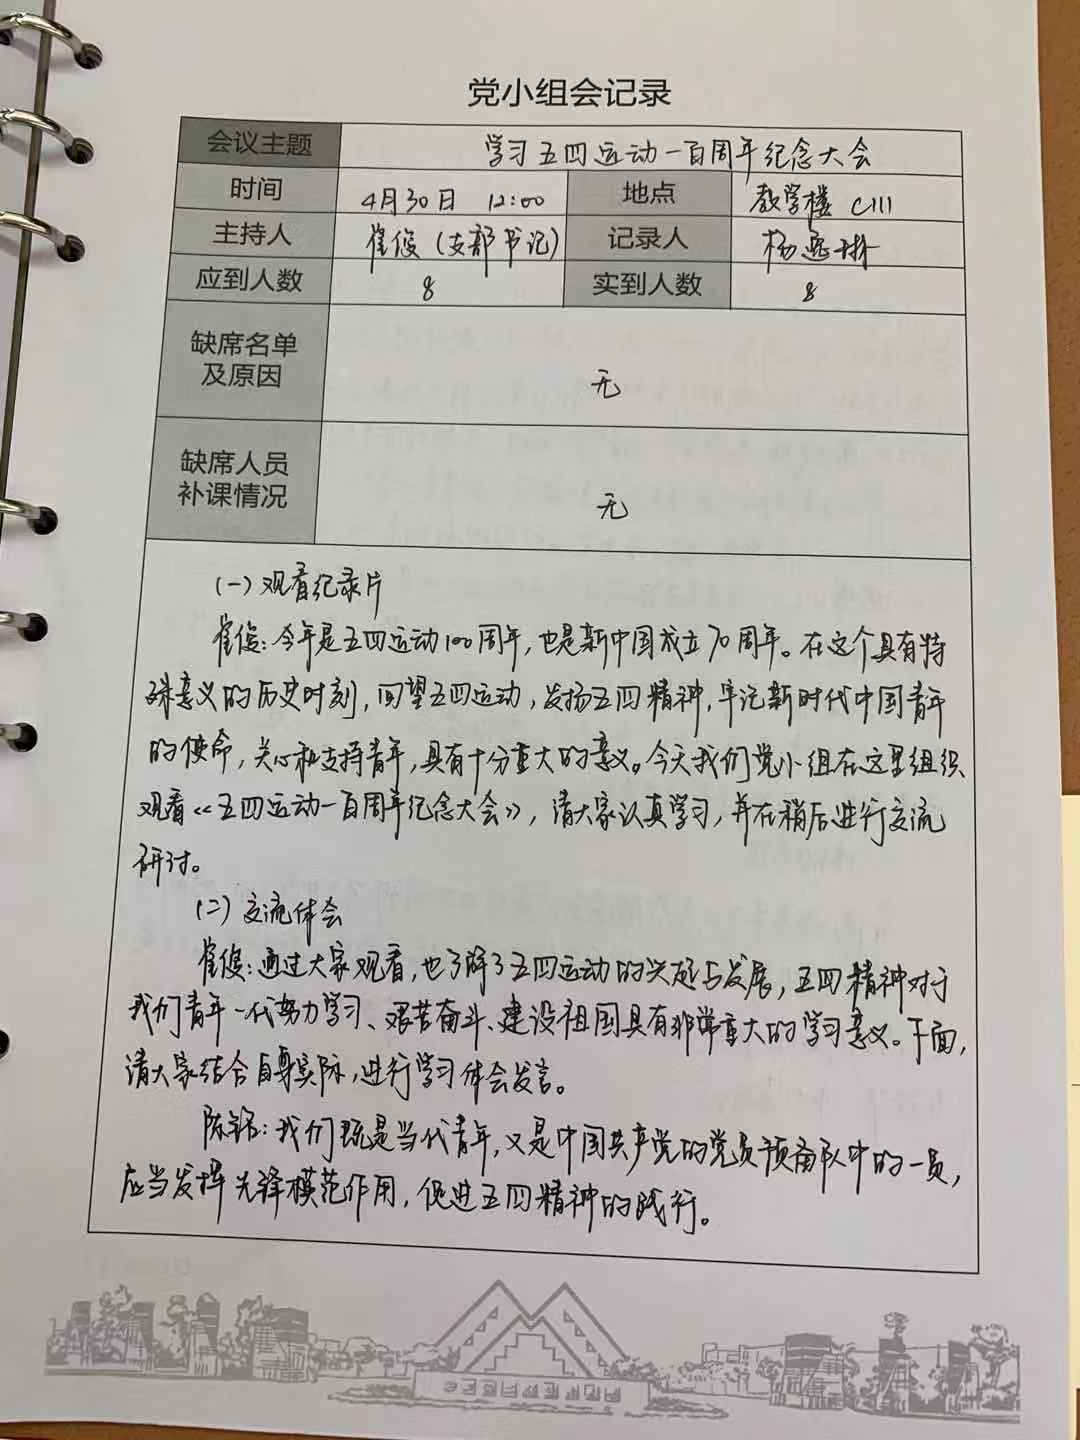 党小组会记录
会议主题 学习五四运动一百周年纪念大会
时间 4月30日 12:00 地点 教学楼 C111
主持人 崔俊(支部书记) 记录人 杨逸琳
应到人数 8 实到人数 8
缺席名单
及原因 无
缺席人员
补课情况 无
(一)观看纪录片
崔俊:今年是五四运动100周年,也是新中国成立70周年。在这个具有特
殊意义的历史时刻,回望五四运动,发扬五四精神,牢记新时代中国青年
的使命,关心和支持青年,具有十分重大的意义。今天我们党小组在这里组织
观看《五四运动一百周年纪念大会》,请大家认真学习,并在稍后进行交流
研讨。
(二)交流体会
崔俊:通过大家观看,也了解了五四运动的兴起与发展,五四精神对于
我们青年一代努力学习、艰苦奋斗、建设祖国具有非常重大的学习意义。下面,
请大家结合自身实际,进行学习体会发言。
陈铭:我们既是当代青年,又是中国共产党的党员预备队中的一员,
应当发挥先锋模范作用,促进五四精神的践行。